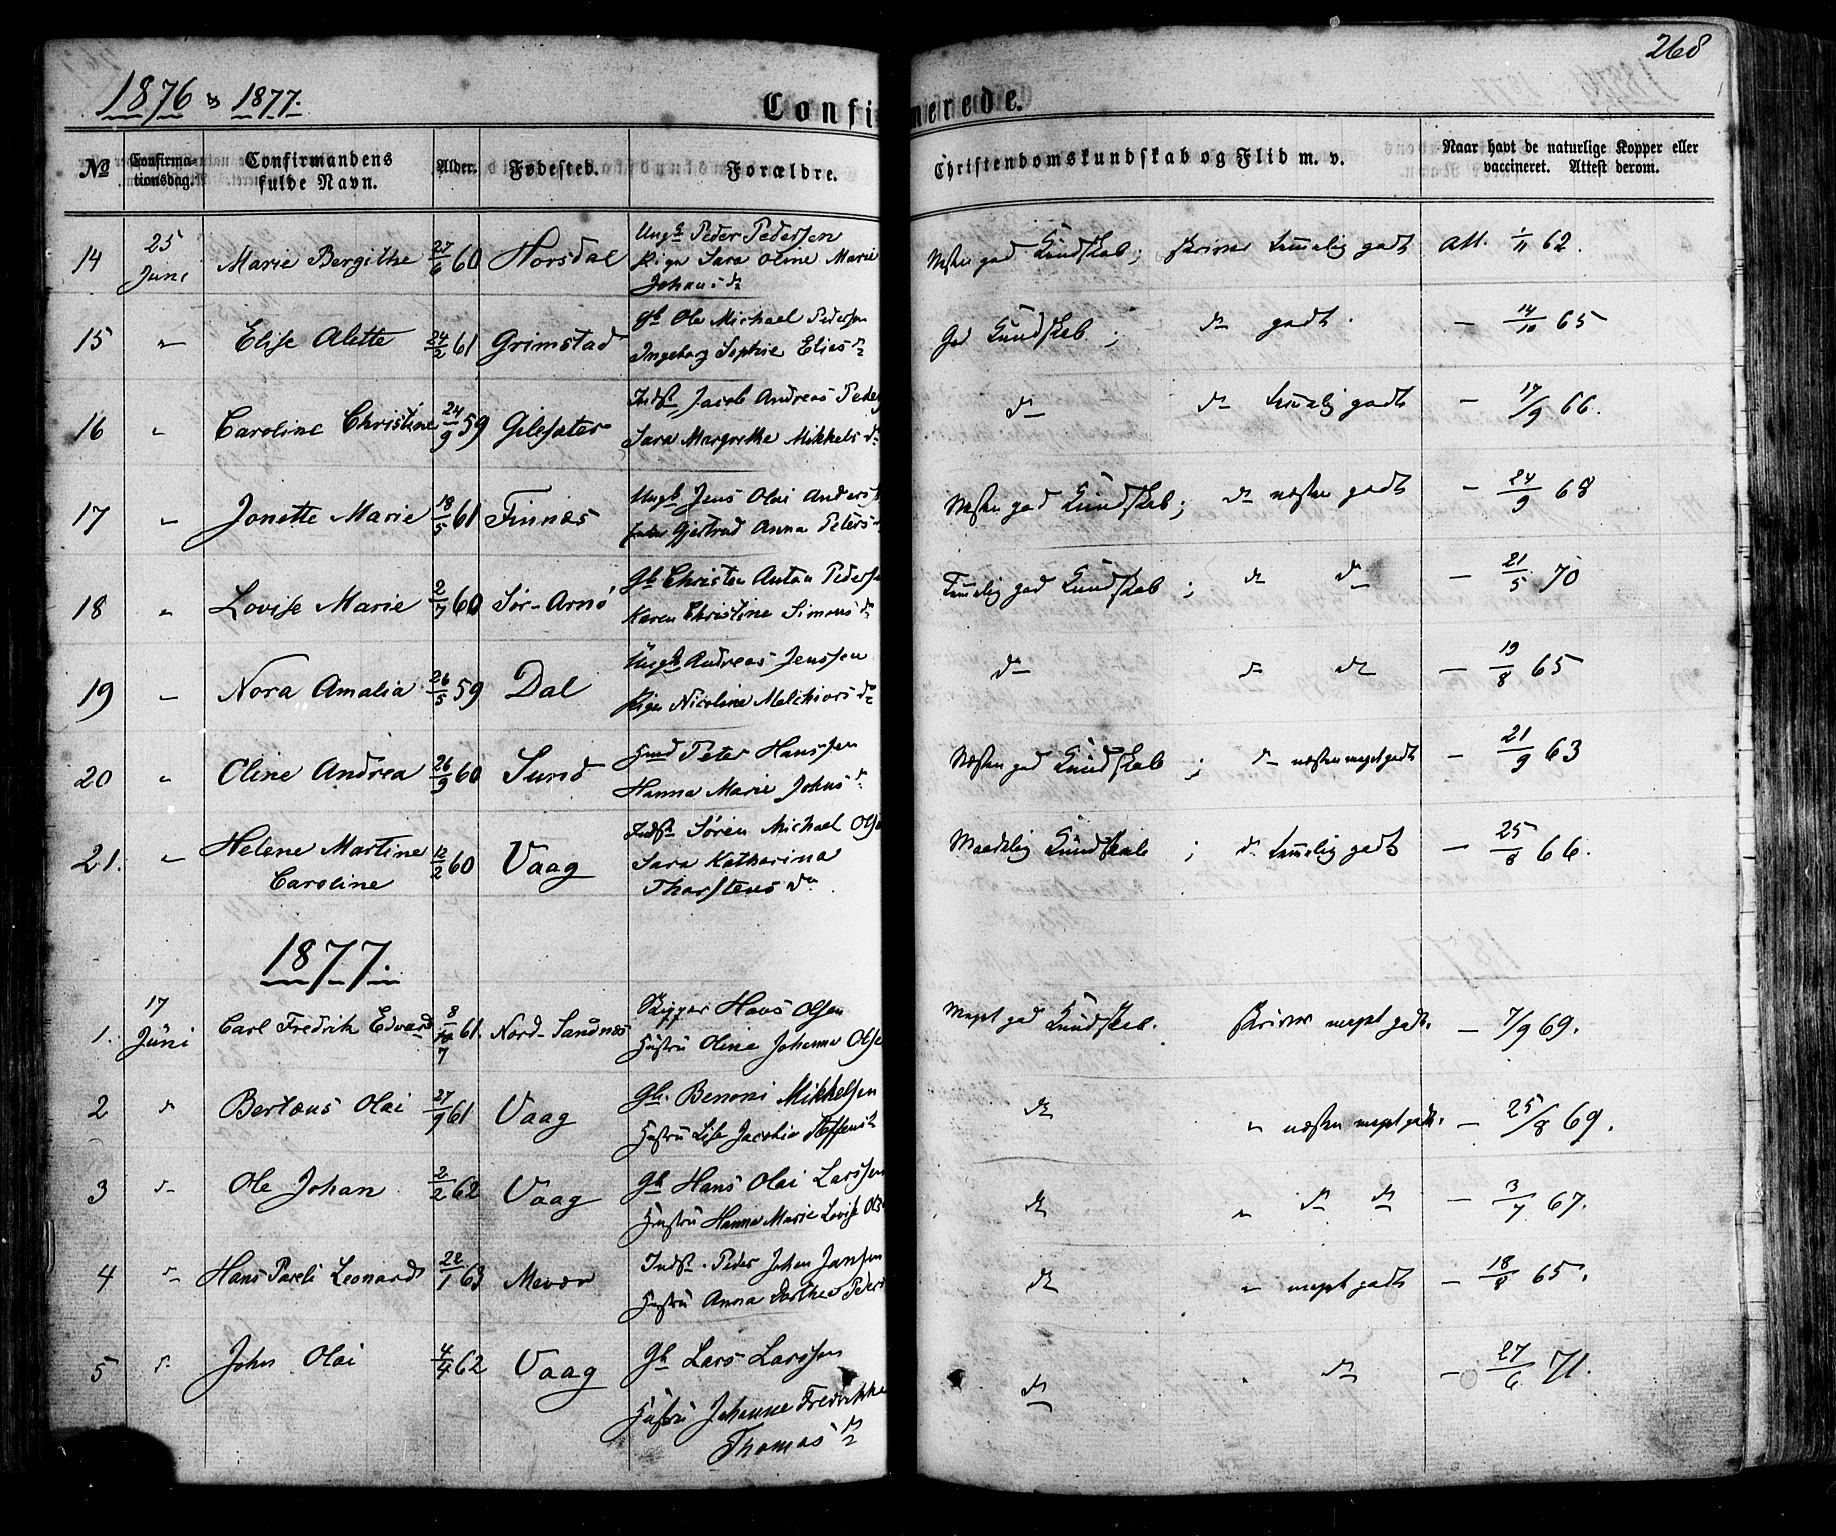 268
1876 & 1877.
Confirmerede.
No
Confirmationsdag.
Confirmandens fulde Navn.
Alder.
Fødested.
Forældre.
Christendomskundskab og Flid m. v.
Naar havt de naturlige Kopper eller vaccineret. Attest derom.
14 25 Juni Marie Bergithe 27/6 60 Horsdal Ungk Peder Pedersen Pige Sara Oline Marie Johansd Næsten god Kundskab; skriver temmelig godt Att. 1/11 62.
15 " Elise Alette 24/2 61 Grimstad Gb Ole Michael Pedersen Ingeborg Sophie Eliasd God Kundskab; do godt. - 14/10 65
16 " Caroline Christine 24/9 59 Gilesater Indst Jacob Andreas Peders Sara Margrethe Mikkelsd do do temmelig godt - 17/9 66.
17 " Jonette Marie 18/5 61 Finnæs Ungk Jens Olai Anders Gjertrud Anna Peters Næsten god Kundskab; do næsten godt - 24/9 68
18 " Lovise Marie 2/7 60 Sør-Arnø Gb Christen Anton Peders Karen Christine Simonsd Temmelig god Kundskab; do do - 21/5 70
19 " Nora Amalia 26/5 59 Dal Ungk Andreas Jenssen Pige Nicoline Melchiorsd do do do - 19/8 65
20 " Oline Andrea 26/9 60 Sund Huusmd Peter Hanssen Hanna Marie Johnsd Næsten god Kundskab; do næsten meget godt - 21/9 63
21. " Helene Martine Caroline 12/2 60 Vaag Indst Søren Michael Olse Sara Katharina Thorstensd Maadelig Kundskab; do temmelig godt - 25/8 66.
1877.
1. 17 Juni Carl Fredrik Edvard 8/7 61. Nord-Sandnæs Skipper Hans Olsen Hustru Oline Johanna Olse Meget god Kundskab. skriver meget godt. - 7/9 69.
2 do Bertæus Olai 27/9 61 Vaag Gb. Benoni Mikkelsen Hustru Lise Jacobia Steffensd do " næsten meget godt. - 25/8 69.
3 do Ole Johan 2/2 62 Vaag Gb Hans Olai Larssen Hustru Hanna Marie Lovise Ols do " do do - 3/7 67.
4 do Hans Pareli Leonard 22/1 63 Mevær Indst. Peder Johan Jansen Hustru Anna Dorthea Peders do " meget godt - 18/8 65.
5 do John Olai 4/4 62 Vaag Gb Lars Larssen Hustru Johanne Fredrikke Thomasd do do - 27/6 71.